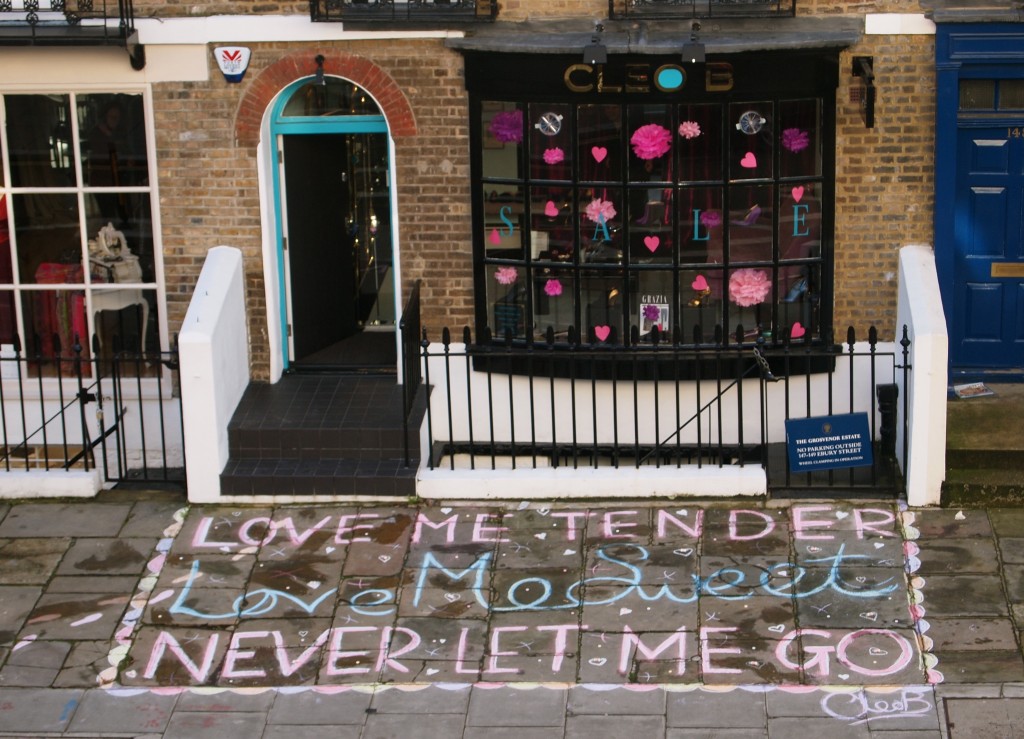 CLEO B
SALE
GRAZIA
THE GROSVENOR ESTATE
NO PARKING OUTSIDE
147-149 EBURY STREET
WHEEL CLAMPING IN OPERATION
LOVE ME TENDER
Love Me Sweet
NEVER LET ME GO
CleoB